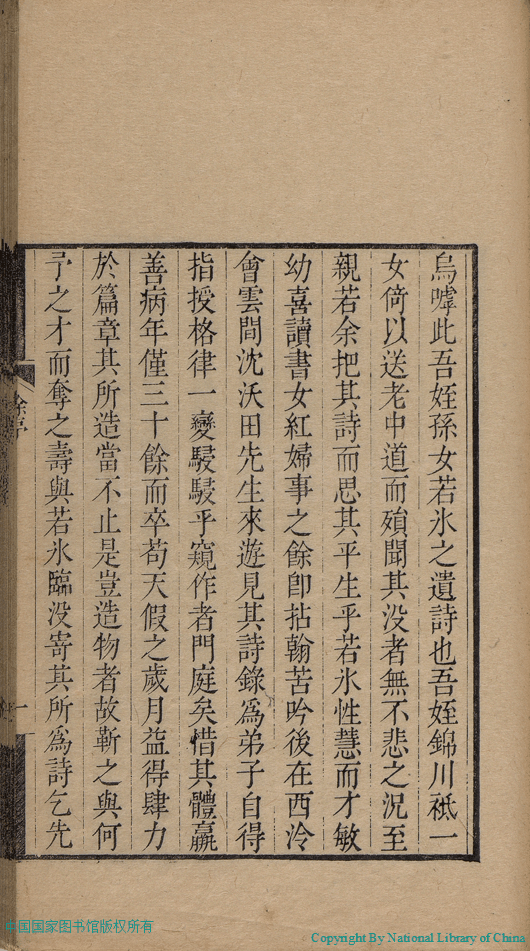 烏嘑此吾姪孫女若氷之遺詩也吾姪錦川祗一
女倚以送老中道而殞聞其没者無不悲之況至
親若余把其詩而思其平生乎若氷性慧而才敏
幼喜讀書女紅婦事之餘卽拈翰苦吟後在西泠
會雲間沈沃田先生來遊見其詩錄爲弟子自得
指授格律一變駸駸乎窺作者門庭矣惜其體羸
善病年僅三十餘而卒苟天假之歲月益得肆力
於篇章其所造當不止是豈造物者故靳之與何
予之才而奪之壽與若氷臨没寄其所爲詩乞先
一
中国国家图书馆版权所有
Copyright By National Library of China